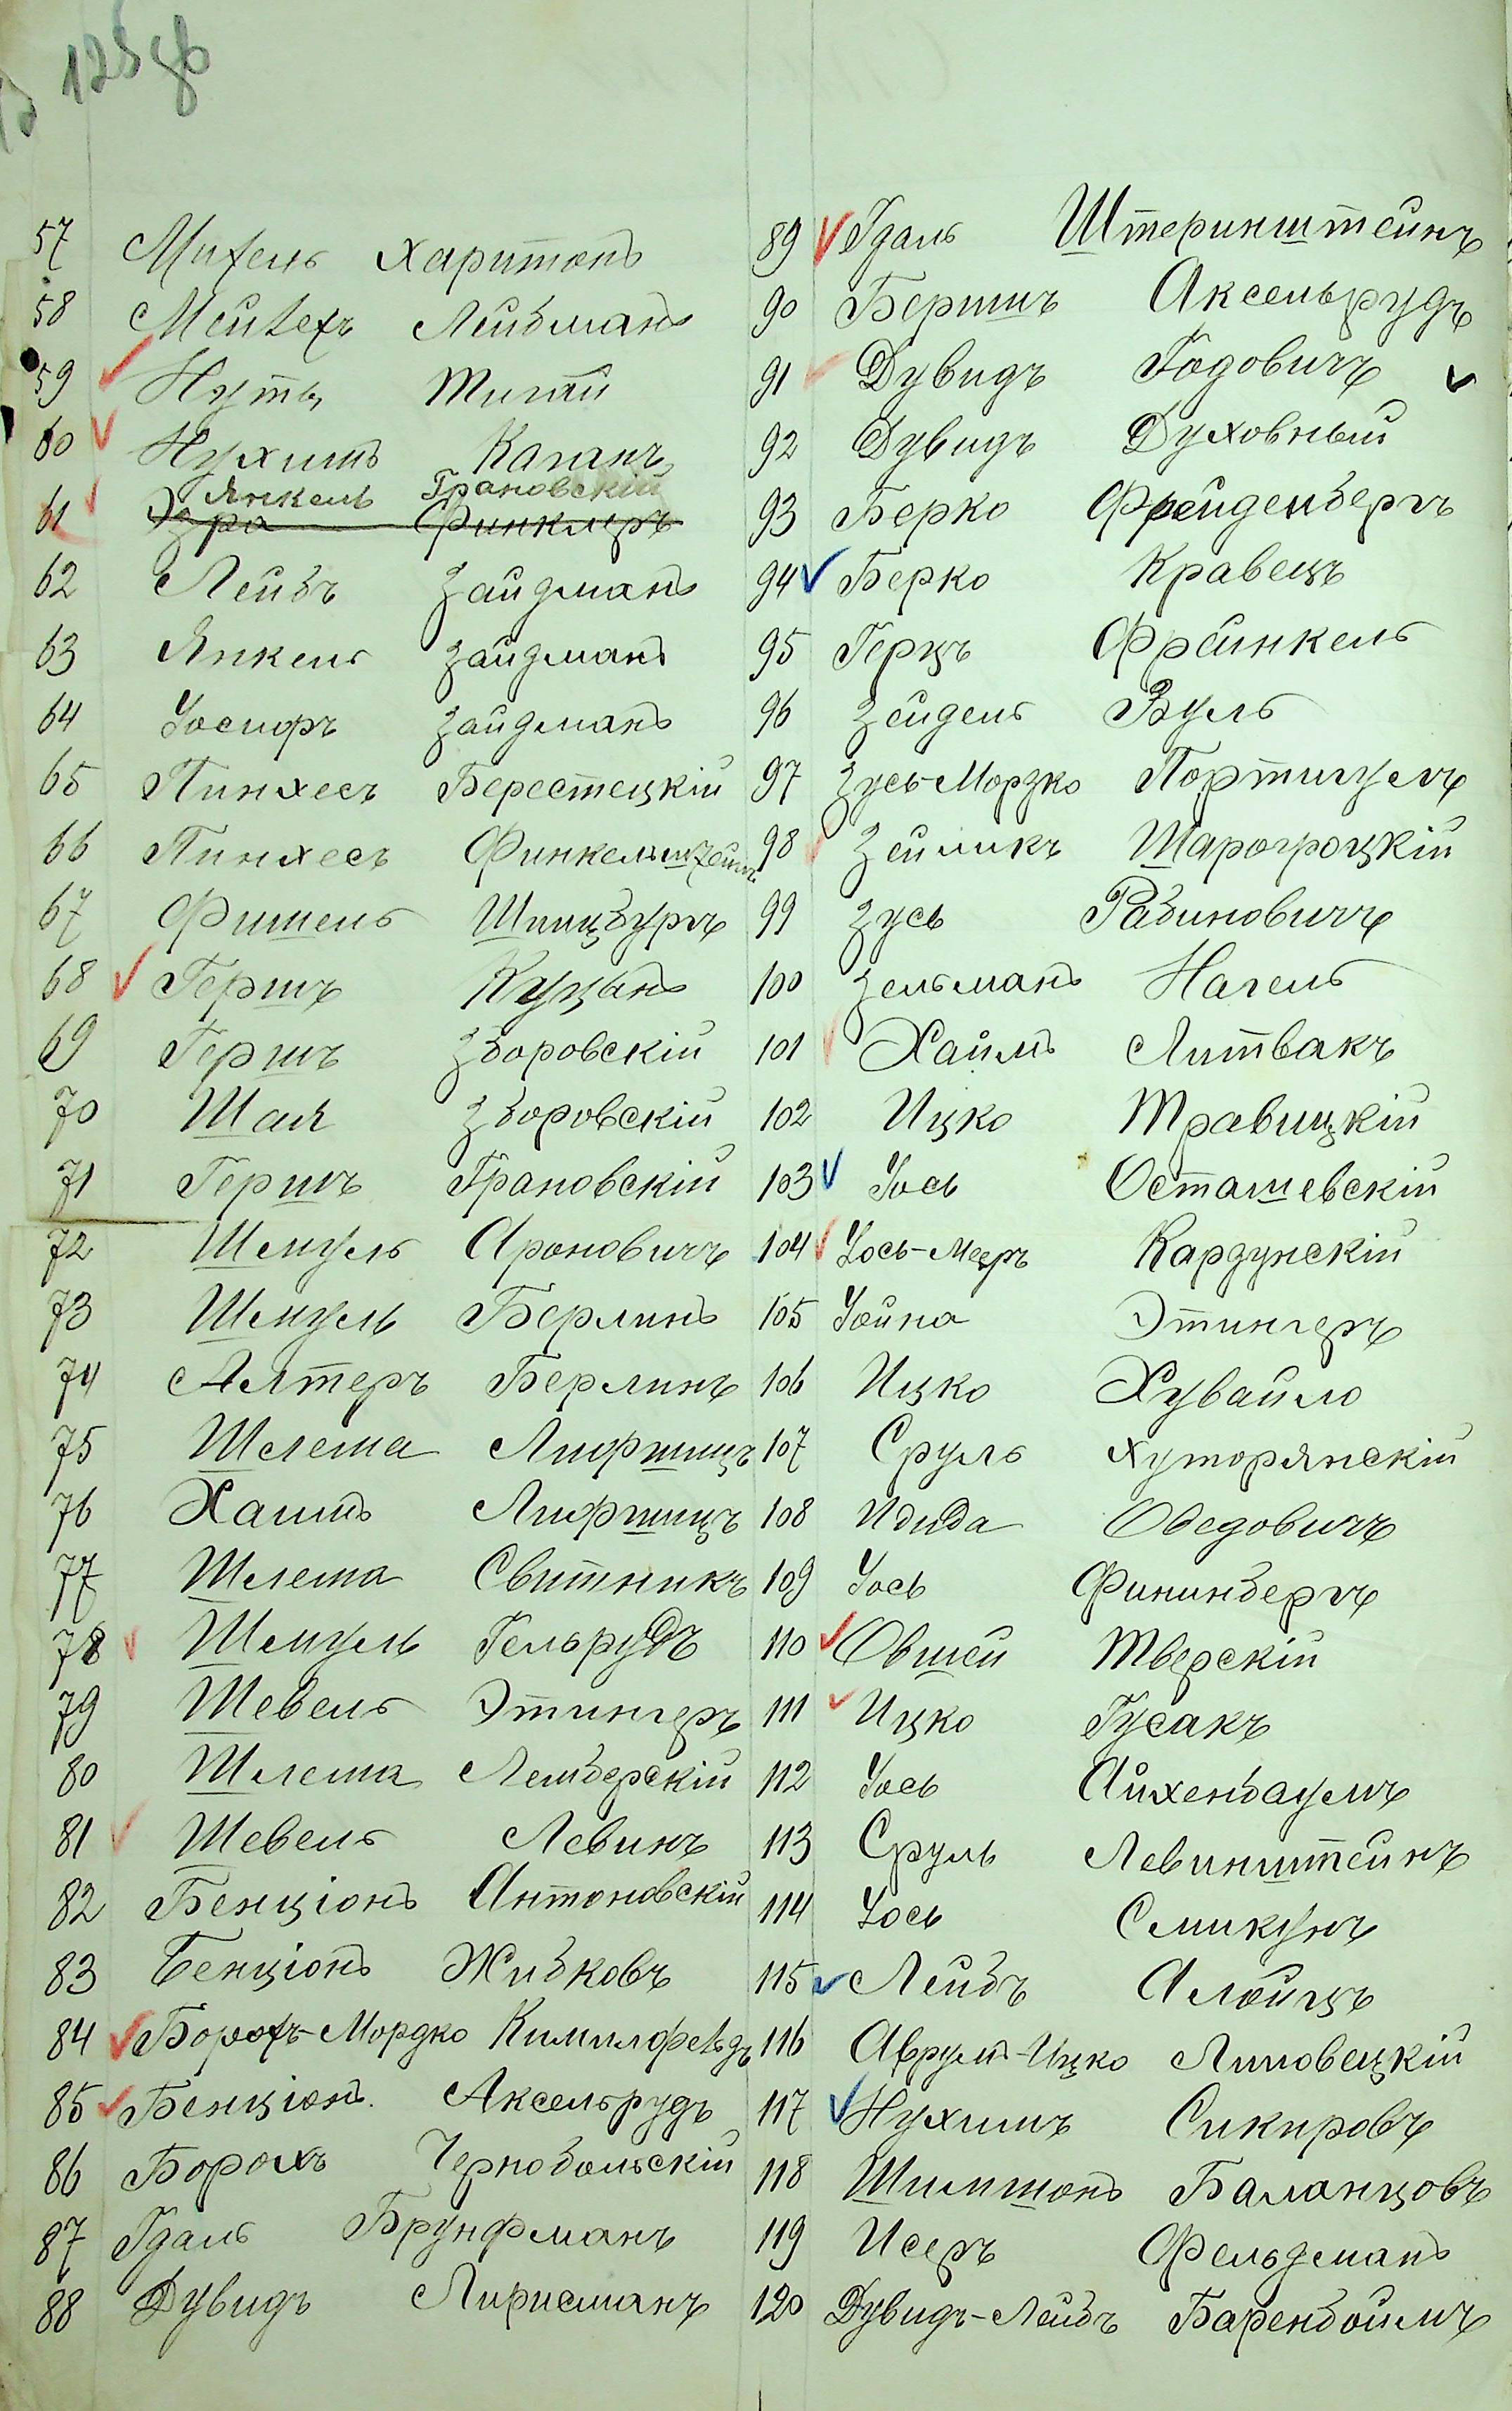 125 дв
57 Михель Харитонъ
58 Мейлехъ Лейбманъ
59 Нута Тигай
60 Нухимъ Каганъ
Янкель Грановскій
61 Эзра Финклеръ
62 Лейбъ Зайдманъ
63 Янкель Зайдманъ
64 Іосифъ Зайдманъ
65 Пинхесъ Берестецкій
66 Пинхесъ Финкельштейнъ
67 Фишель Шпицбургъ
68 Гершъ Куцынъ
69 Гершъ Зборовскій
70 Шая Зборовскій
71 Гершъ Грановскій
72 Шмуль Ароновичъ
73 Шмуль Берлинъ
74 Алтеръ Берлинъ
75 Шлема Лифшицъ
76 Хаимъ Лифшицъ
77 Шлема Свитникъ
78 Шмуль Гельрудъ
79 Шевель Этингеръ
80 Шлема Лемберскій
81 Шевель Левинъ
82 Бенціонъ Антоновскій
83 Бенціонъ Жибковъ
84 Борохъ-Мордко Кимилфельдъ
85 Бенціонъ Аксельрудъ
86 Борохъ Чернобыльскій
87 Гдаль Брунфманъ
88 Дувидъ Лирисманъ
89 Гдаль Штеринштейнъ
90 Бершъ Аксельрудъ
91 Дувидъ Годовичъ
92 Дувидъ Духовный
93 Берко Фрейденбергъ
94 Берко Кравецъ
95 Герцъ Френкель
96 Зейдель Вуль
97 Зусь-Мордко Портигулъ
98 Зейликъ Шарогроцкій
99 Зусь Рабиновичъ
100 Зельманъ Нагель
101 Хаимъ Литвакъ
102 Ицко Травицкій
103 Іось Осташевскій
104 Іось-Мееръ Кардунскій
105 Іойна Этингеръ
106 Ицко Хувайло
107 Сруль Хуторянскій
108 Идида Обедовичъ
109 Іось Фининбергъ
110 Овшей Тверскій
111 Ицко Гусакъ
112 Іось Айхенбаумъ
113 Сруль Левинштейнъ
114 Іось Смикунъ
115 Лейбъ Алойцъ
116 Аврумъ-Ицко Липовецкій
117 Нухимъ Сикировъ
118 Шимшонъ Баланцовъ
119 Исеръ Фельдманъ
120 Дувидъ-Лейбъ Баренбоймъ